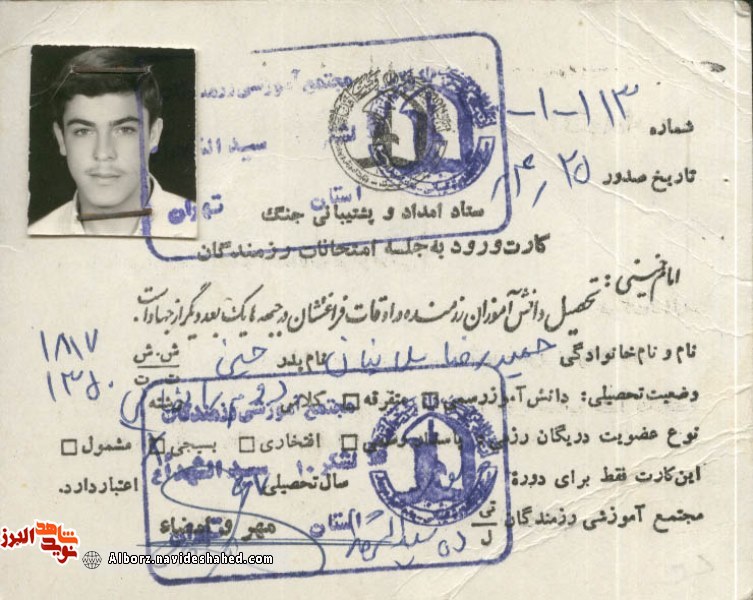 شماره ۱۱۳-۱-
تاریخ صدور
ستاد امداد و پشتیبانی جنگ
کارت ورود به جلسه امتحانات رزمندگان
امام خمینی:
تحصیل دانش‌آموزان رزمنده و اوقات فراغتشان در جبهه ها یک بعد دیگر از جهاد است.
نام و نام خانوادگی حمیدرضا نام پدر ش.ش ۱۸۱۷
ت ت ۱۳۵۰
وضعیت تحصیلی: دانش آموز رسمی متفرقه کلاس رشته
نوع عضویت در یگان رزمی: پاسدار افتخاری بسیجی مشمول
این کارت فقط برای دوره سال تحصیلی اعتبار دارد.
مجتمع آموزشی رزمندگان تی ل مهر و امضاء
مجتمع آموزشی رزمندگان
لشگر
سید
استان تهران
مجتمع آموزشی رزمندگان
لشگر ۱۰ سیدالشهداء
استان
شاهد
نوید
البرز
Alborz.navideshahed.com